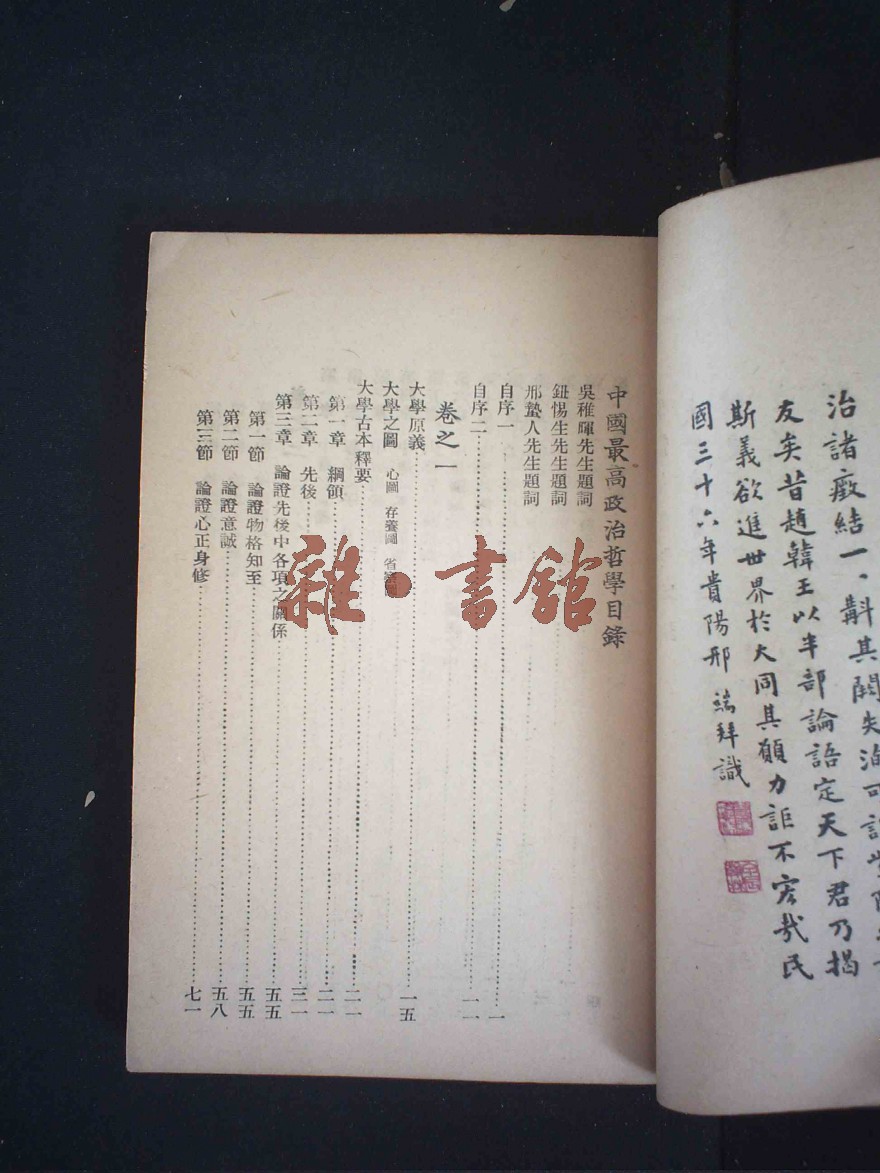 治諸癥結一、斠其闕失洵可
友矣昔趙韓王以半部論語定天下君乃揭
斯義欲進世界於大同其願力詎不宏哉民
國三十六年貴陽邢端拜識
中國最高政治哲學目錄
吳稚暉先生題詞
鈕惕生先生題詞
邢蟄人先生題詞
自序一……一
自序二……一一
卷之一
大學原義……一五
大學之圖 心圖 存養圖 省
大學古本釋要……二一
第一章 綱領……二一
第二章 先後……三一
第三章 論證先後中各項之關係……五五
第一節 論證物格知至……五五
第二節 論證意誠……五八
第三節 論證心正身修……七一
雜·書館